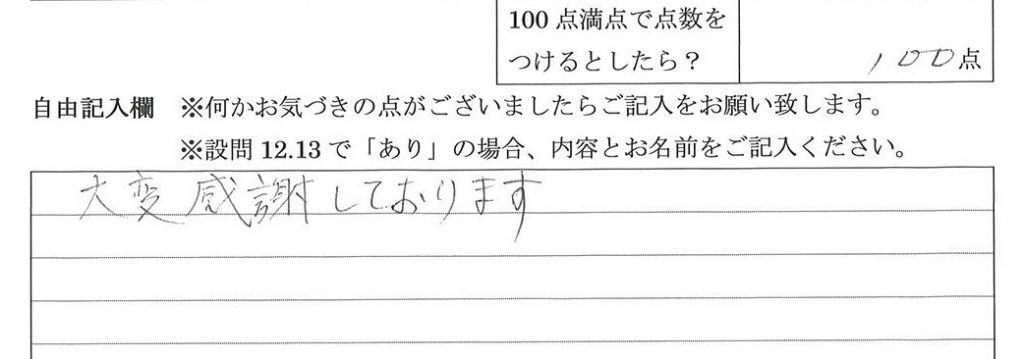 100 点満点で点数を
つけるとしたら？
100点
自由記入欄 ※何かお気づきの点がございましたらご記入をお願い致します。
※設問 12.13 で「あり」の場合、内容とお名前をご記入ください。
大変感謝しております